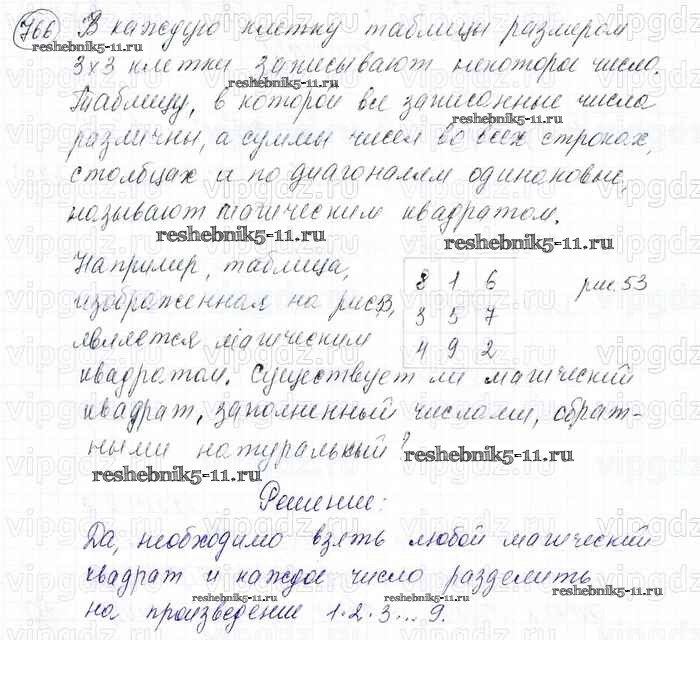 766 В каждую клетку таблицы размером
3х3 клетки записывают некоторое число.
Таблицу, в которой все записанные числа
различны, а суммы чисел во всех строках,
столбцах и по диагоналям одинаковые,
называют магическим квадратом.
Например, таблица,
изображенная на рис 53,
является магическим
8 1 6
3 5 7
4 9 2
рис. 53
квадратом. Существует ли магический
квадрат, заполненный числами, обрат-
ными натуральным?
Решение:
Да, необходимо взять любой магический
квадрат и каждое число разделить
на произведение 1·2·3...9.
reshebnik5-11.ru
vipgdz.ru